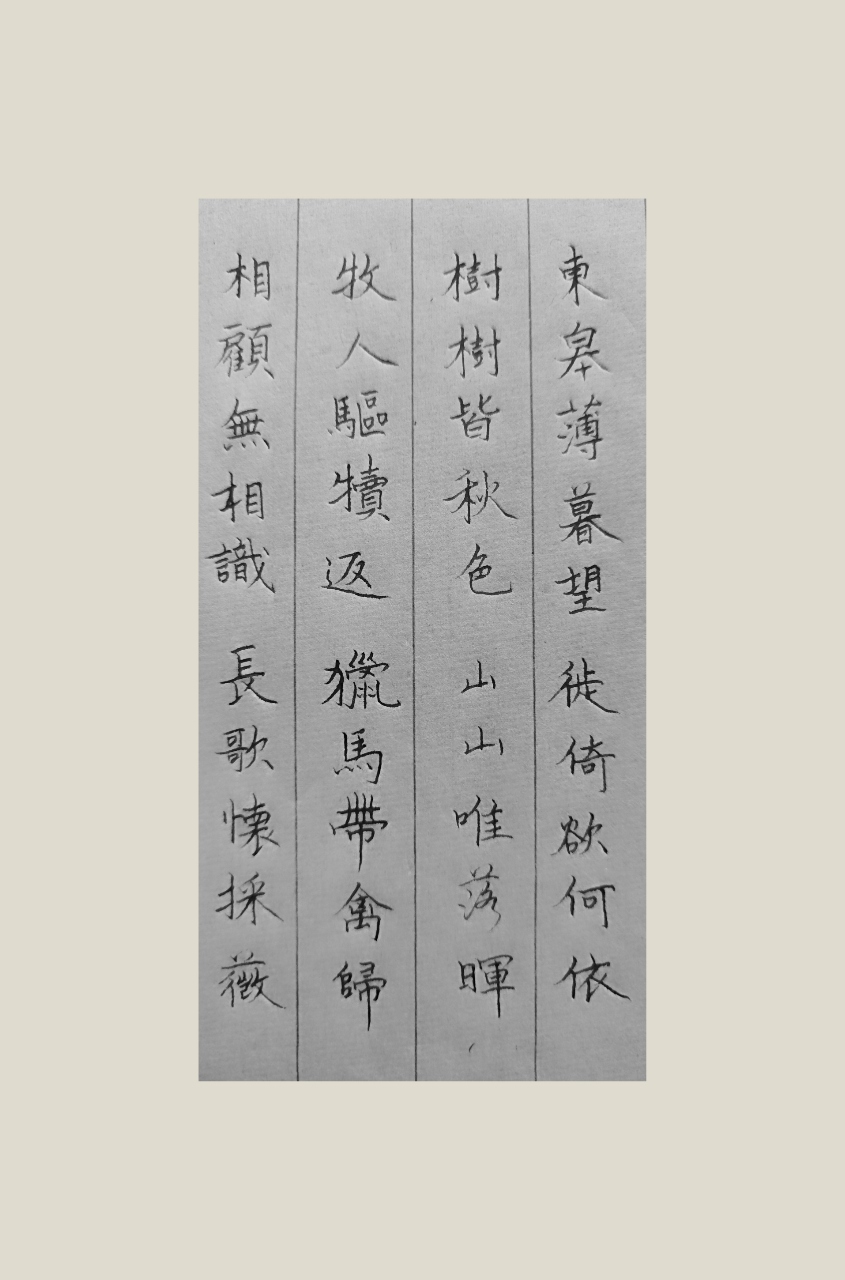 東皋薄暮望 徙倚欲何依
樹樹皆秋色 山山唯落暉
牧人驅犢返 獵馬帶禽歸
相顧無相識 長歌懷採薇